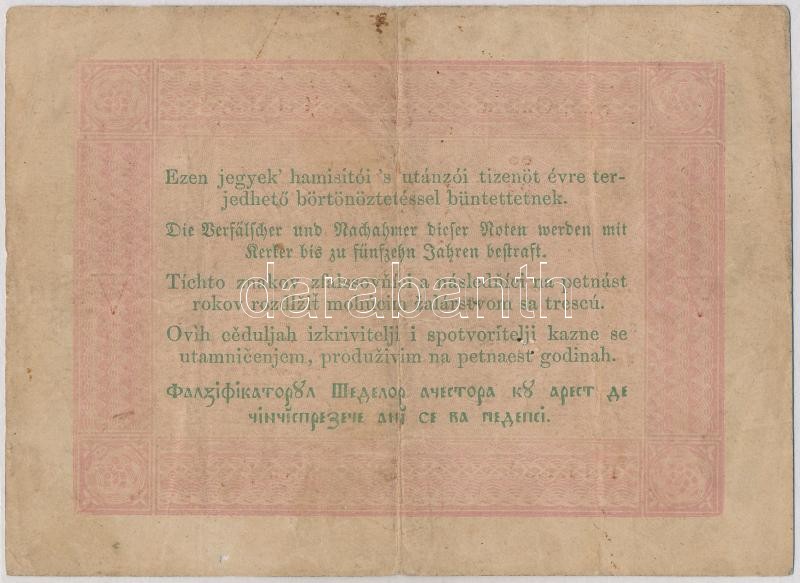 Ezen jegyek' hamisítói 's utánzói tizenöt évre ter-
jedhető börtönöztetéssel büntettetnek.
Die Verfälscher und Nachahmer dieser Noten werden mit
Kerker bis zu fünfzehn Jahren bestraft.
Tíchto znakov zfalšovňíci a následňíci na petnást
rokov rozďížiť mohúcim žalárstvom sa trescú.
Ovih cěduljah izkrivitelji i spotvoritelji kazne se
utamničenjem, produživim na petnaest godinah.
Фалзіфікаторꙋл Шеделор ачестора кꙋ арест де
чінчіспрезече ані се ва педепсі.
darabanth